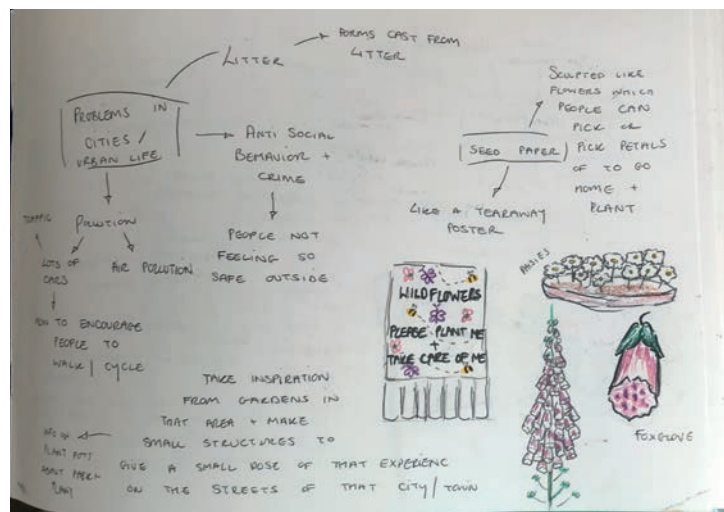 LITTER
FORMS CAST FROM
LITTER
PROBLEMS IN
CITIES /
URBAN LIFE
ANTI SOCIAL
BEHAVIOR +
CRIME
PEOPLE NOT
FEELING SO
SAFE OUTSIDE
POLUTION
TRAFFIC
LOTS OF
CARS
AIR POLUTION
HOW TO ENCOURAGE
PEOPLE TO
WALK / CYCLE
SCULPTED LIKE
FLOWERS WHICH
PEOPLE CAN
PICK OR
PICK PETALS
OF TO GO
HOME +
PLANT
SEED PAPER
LIKE A TEARAWAY
POSTER
WILDFLOWERS
PLEASE PLANT ME
+
TAKE CARE OF ME
FOXGLOVE
TAKE INSPIRATION
FROM GARDENS IN
THAT AREA + MAKE
SMALL STRUCTURES TO
GIVE A SMALL DOSE OF THAT EXPERIENC
ON THE STREETS OF THAT CITY / TOWN
INFO ON
PLANT POTS
ABOUT
PLANT